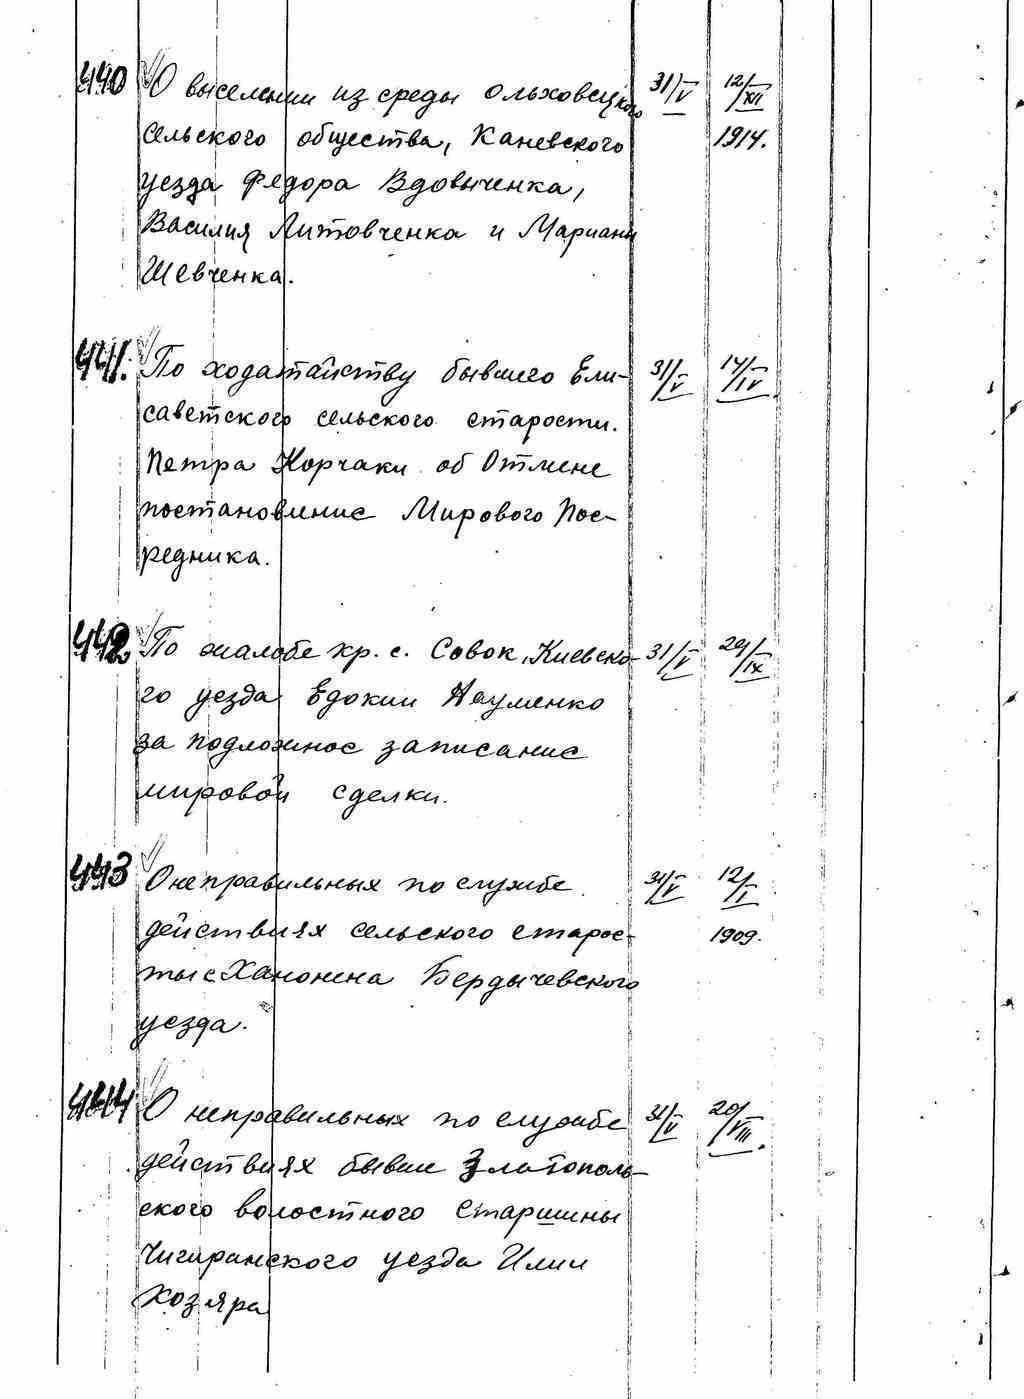 440 О выселении из среды Ольховецкого 31/V 12/XI
сельского общества, Каневского 1914.
уезда Федора Вдовыченка,
Василия Литовченка и Марианы
Шевченка.
441. По ходатайству бывшего Ели- 31/V 14/IV
саветского сельского старости.
Петра Корчаки об Отмене
постановление Мирового Пос-
редника.
442 По жалобе кр. с. Совок, Киевско- 31/V 29/IX
го уезда Едокии Науменко
за подложное записание
мировой сделки.
443 О неправильных по службе 31/V 12/I
действиях сельского старос- 1909.
ты с Ханонина Бердычевского
уезда.
444 О неправильных по службе 31/V 20/VIII.
действиях бывше Златополь-
ского волостного старшины
Чигиранского уезда Илии
Козяра